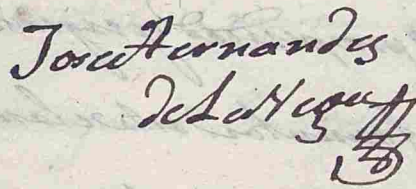 Josee Hernandes
de La Vega